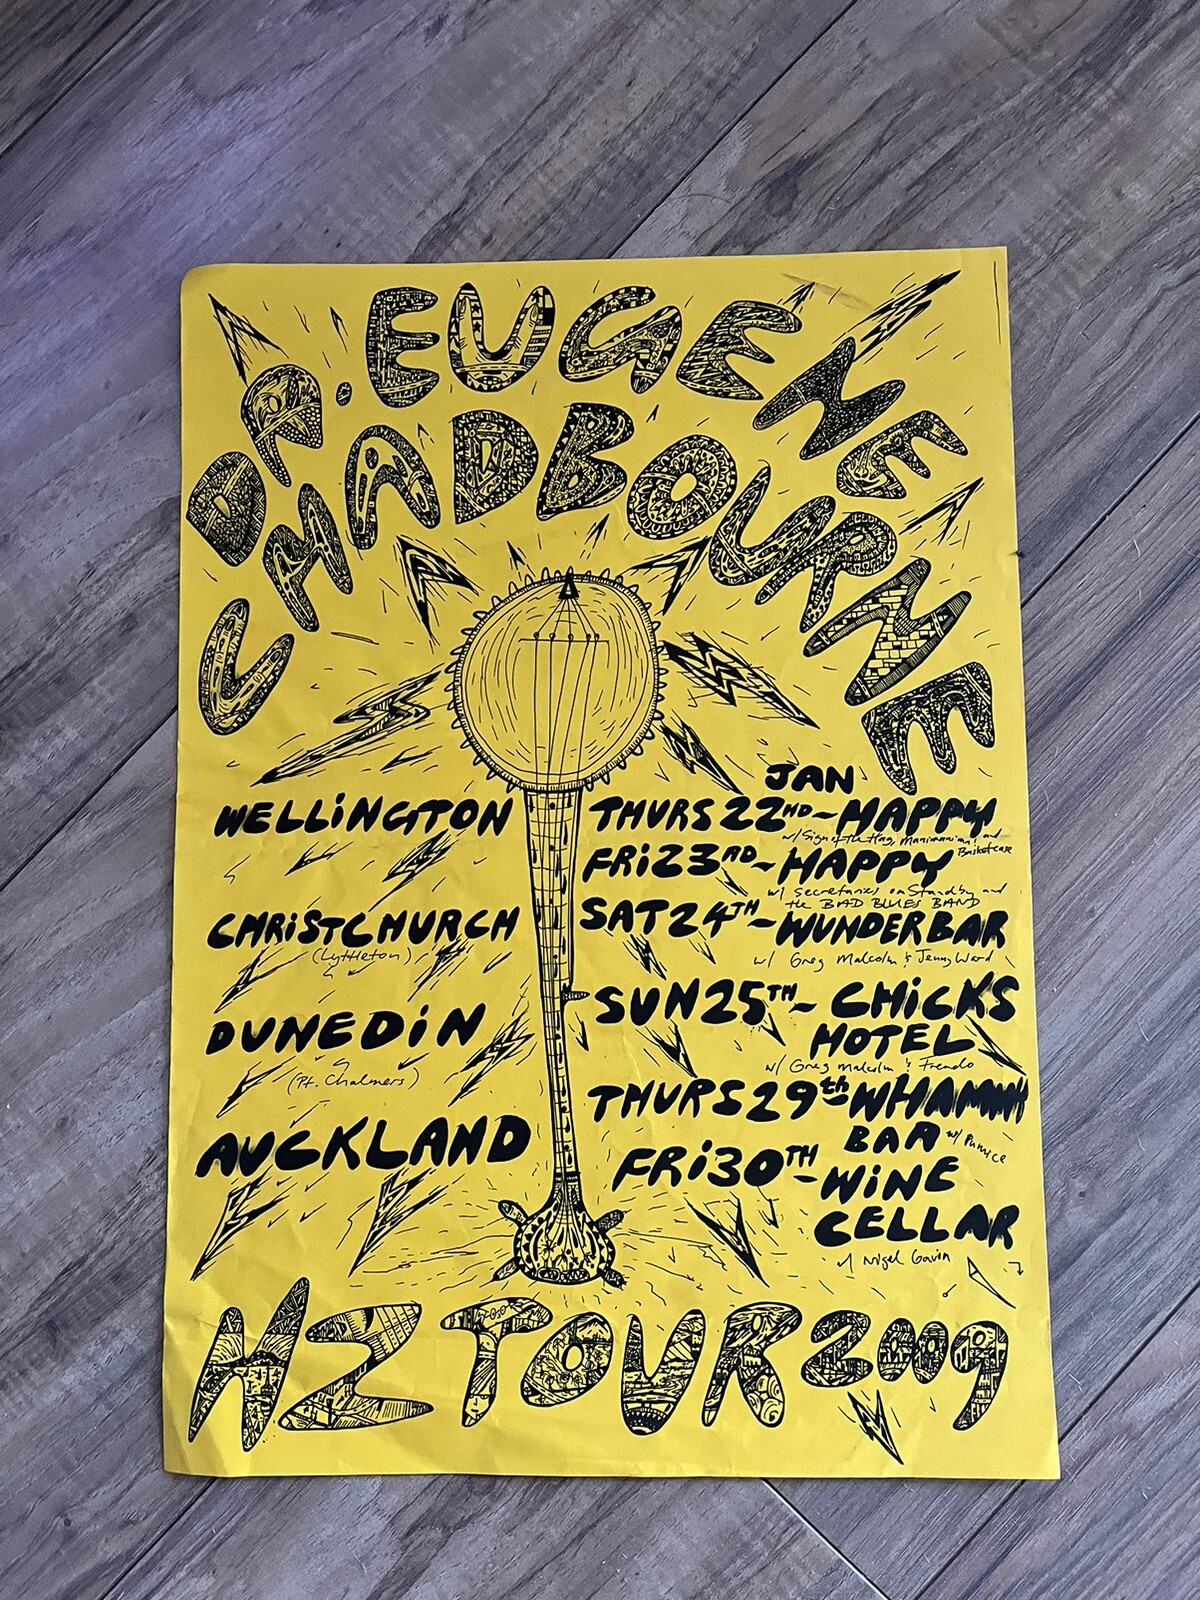 DR. EUGENE
CHADBOURNE
JAN
WELLiNGTON THURS 22ND - HAPPY
w/ Sign of the Hag, and
Basketcase
FRi 23RD - HAPPY
w/ Secretaries on Standby and
the BAD BLUES BAND
CHRiSTCHURCH SAT 24TH - WUNDERBAR
(Lyttleton)
w/ Greg Malcolm & Jenny Ward
DUNEDiN SUN 25TH - CHiCKS
HOTEL
(Pt. Chalmers)
w/ Greg Malcolm &
AUCKLAND THURS 29th - WHAMMM
BAR w/
FRi 30TH - WiNE
CELLAR
w/ Nigel Gavin
NZ TOUR 2009